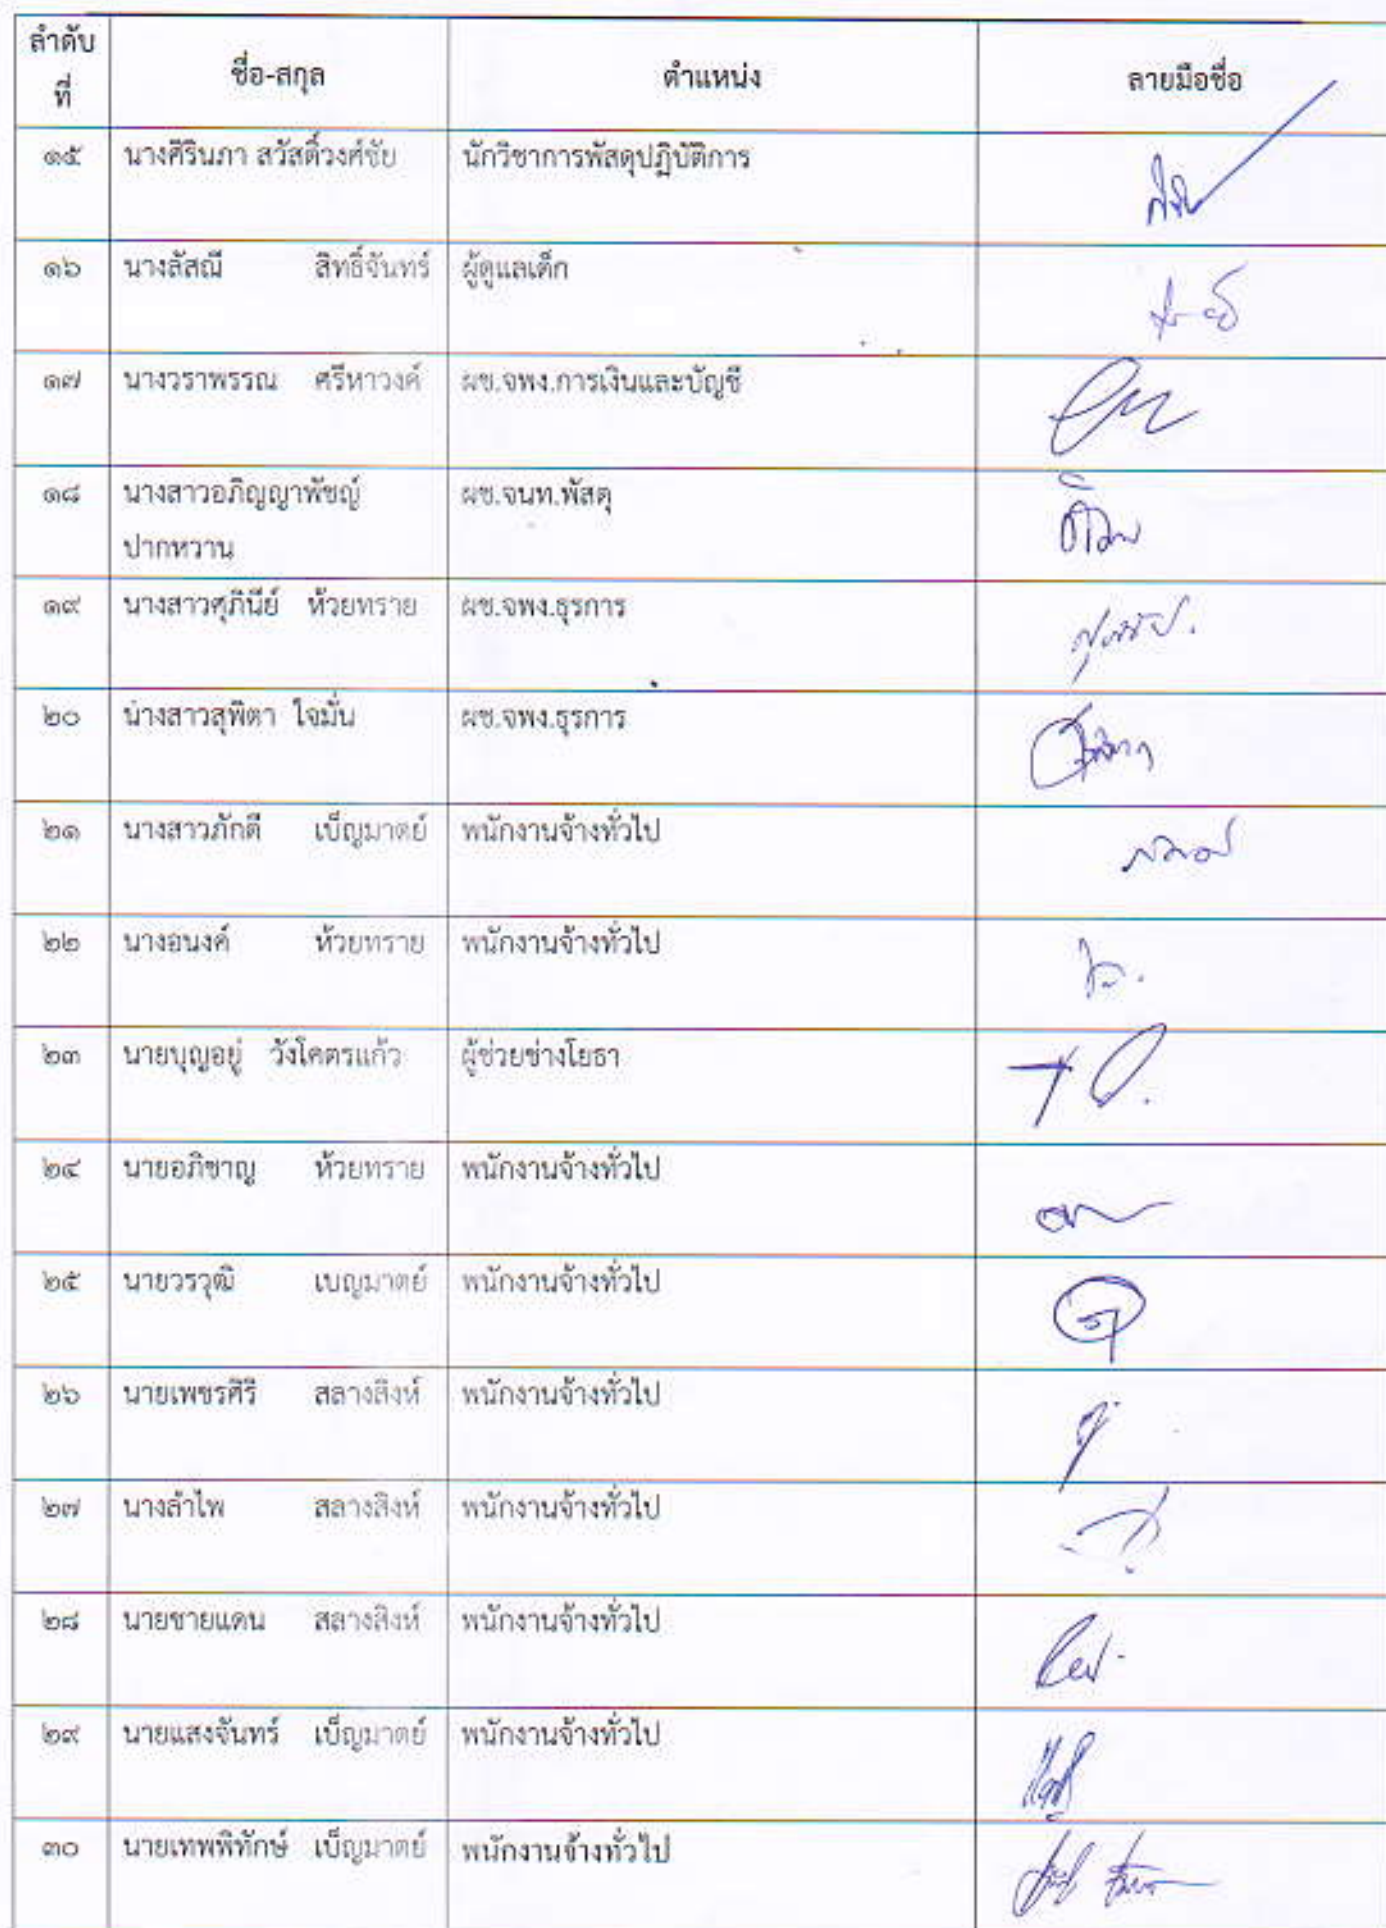 ลำดับ
ที่
ชื่อ-สกุล
ตำแหน่ง
ลายมือชื่อ
๑๕ นางศิรินภา สวัสดิ์วงศ์ชัย นักวิชาการพัสดุปฏิบัติการ
๑๖ นางลัสณี สิทธิ์จันทร์ ผู้ดูแลเด็ก
๑๗ นางวราพรรณ ศรีหาวงค์ ผช.จพง.การเงินและบัญชี
๑๘ นางสาวอภิญญาพัชญ์ ผช.จนท.พัสดุ
ปากหวาน
๑๙ นางสาวศุภินีย์ ห้วยทราย ผช.จพง.ธุรการ
๒๐ นางสาวสุพิตา ใจมั่น ผช.จพง.ธุรการ
๒๑ นางสาวภักดี เบ็ญมาตย์ พนักงานจ้างทั่วไป
๒๒ นางอนงค์ ห้วยทราย พนักงานจ้างทั่วไป
๒๓ นายบุญอยู่ วังโคตรแก้ว ผู้ช่วยช่างโยธา
๒๔ นายอภิชาญ ห้วยทราย พนักงานจ้างทั่วไป
๒๕ นายวรวุฒิ เบญมาตย์ พนักงานจ้างทั่วไป
๒๖ นายเพชรศิริ สลางสิงห์ พนักงานจ้างทั่วไป
๒๗ นางลำไพ สลางสิงห์ พนักงานจ้างทั่วไป
๒๘ นายชายแดน สลางสิงห์ พนักงานจ้างทั่วไป
๒๙ นายแสงจันทร์ เบ็ญมาตย์ พนักงานจ้างทั่วไป
๓๐ นายเทพพิทักษ์ เบ็ญมาตย์ พนักงานจ้างทั่วไป